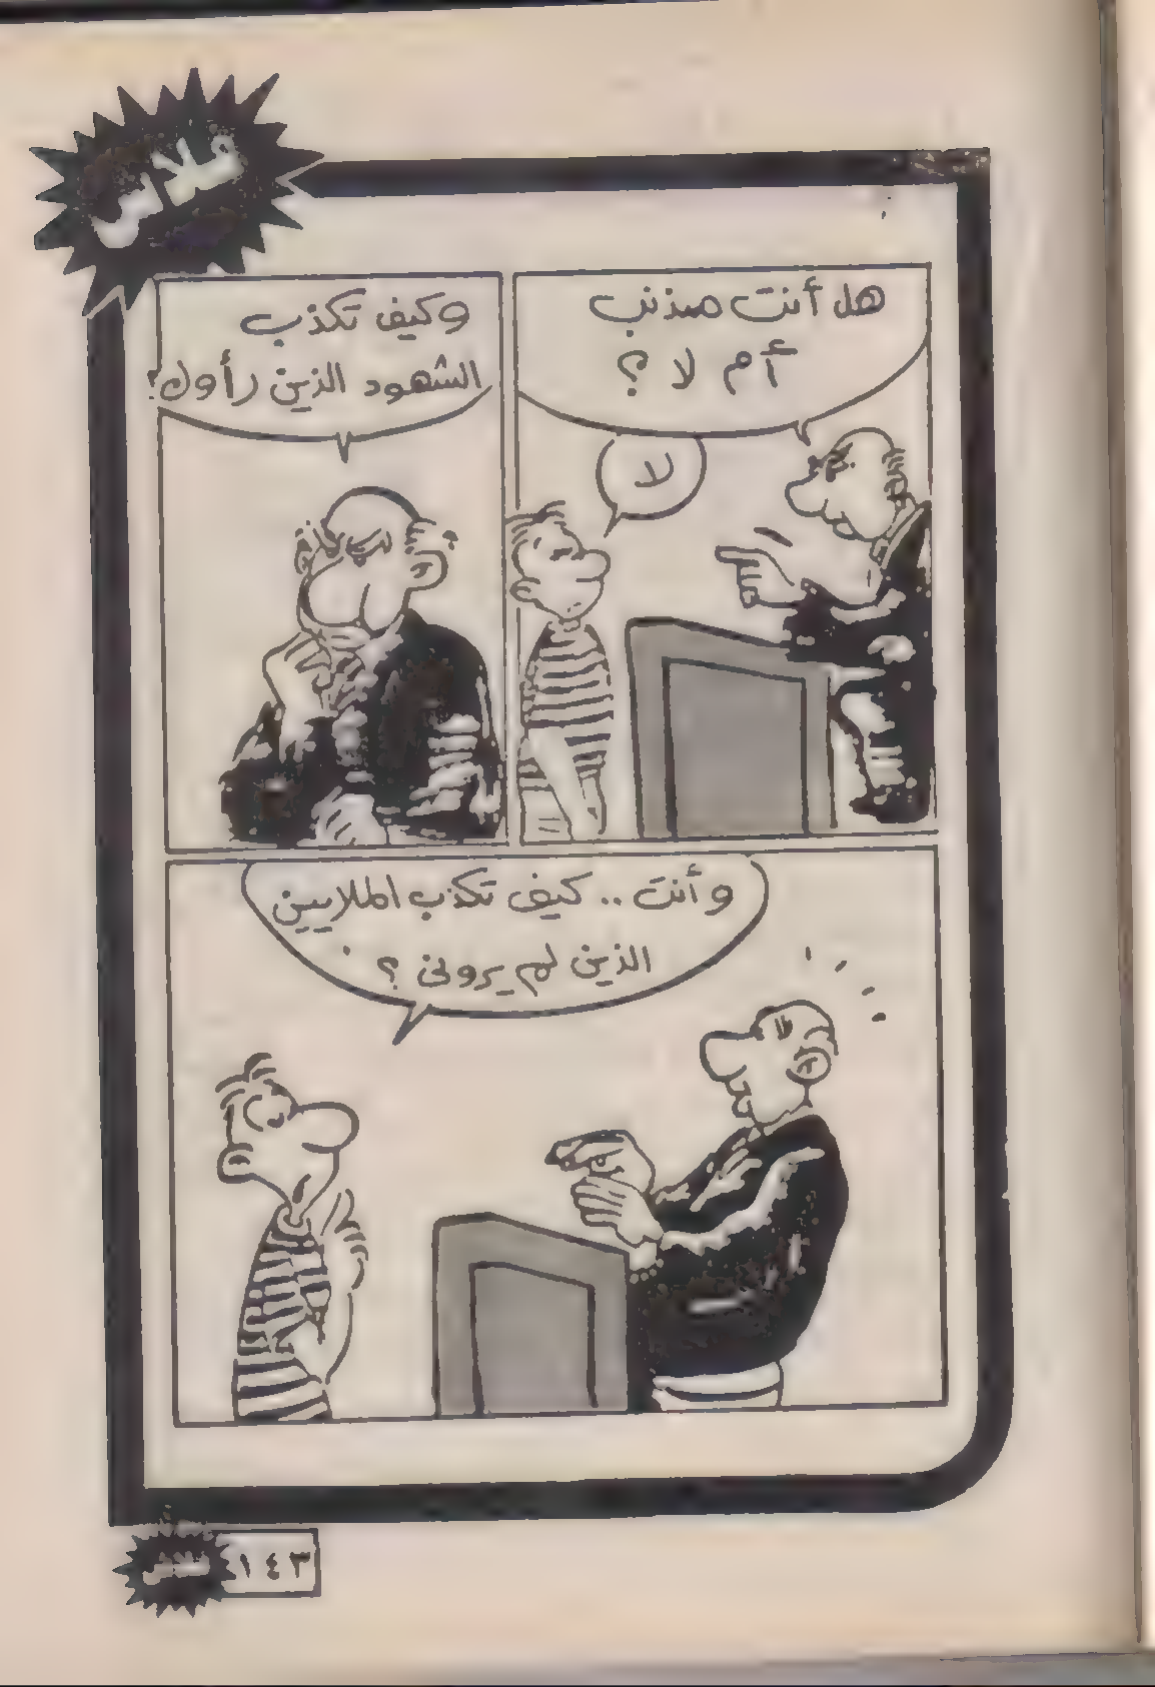 فلاش
هل أنت مذنب
أم لا ؟
لا
وكيف تكذب
الشهود الذين رأوك؟
وأنت .. كيف تكذب الملايين
الذين لم يرونى ؟
١٤٣